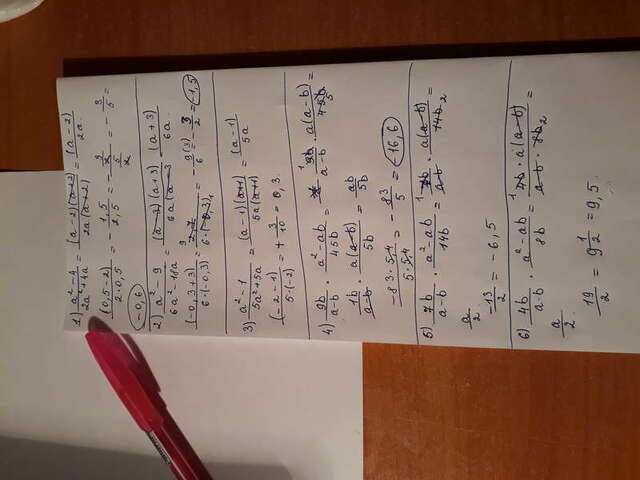 1) (a² - 4)/(2a² + 4a) = ((a-2)(a+2))/(2a(a+2)) = (a-2)/2a
(0,5-2)/(2·0,5) = - 1,5/2,5 = - (3/2)/(5/2) = - 3/5 =
-0,6
2) (a² - 9)/(6a² - 18a) = ((a-3)(a+3))/(6a(a-3 (a+3)/6a
(-0,3+3)/(6·(-0,3)) = 2,7/(6·(-0,3)) = - 9/6 (3) = - 3/2 = -1,5
3) (a² - 1)/(5a² + 5a) = ((a-1)(a+1))/(5a(a+1)) = (a-1)/5a
(-2-1)/(5·(-2)) = + 3/10 = 0,3
4) 9b/(a-b) · (a² - ab)/45b = 9b/(a-b) · a(a-b)/45b =
1b/(a-b) · a(a-b)/5b = ab/5b
(-83·5,4)/(5·5,4) = - 83/5 = -16,6
5) 7b/(a-b) · (a² - ab)/14b = 7b/(a-b) · a(a-b)/14b =
a/2
-13/2 = -6,5
6) 4b/(a-b) · (a² - ab)/8b = (4b · a(a-b))/(a-b · 8b) =
a/2
19/2 = 9 1/2 = 9,5.